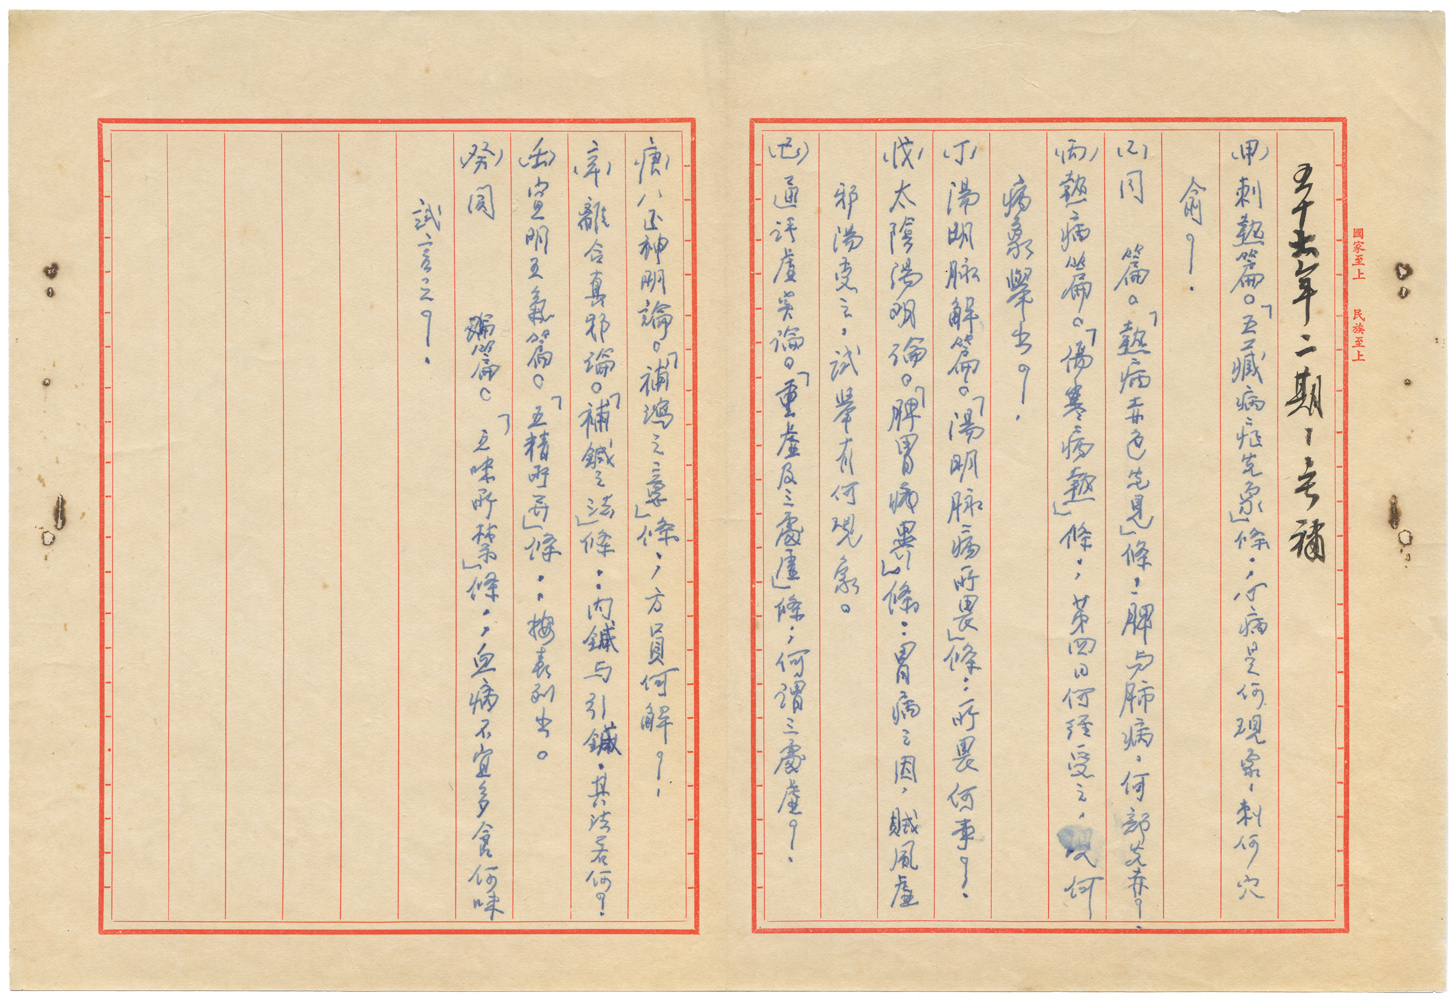 國家至上 民族至上
五十七年二期
補
(甲)刺熱篇。「五臟病症先象」條:心病是何現象,刺何穴
俞?.
(乙)同 篇。「熱病赤色先見」條:脾与肺病,何部先赤?.
(丙)熱病篇。「傷寒病熱」條:第四日何經受之,現何
病象舉出?.
(丁)陽明脉解篇。「陽明脉病所畏」條:所畏何事?.
(戊)太陰陽明論。「脾胃病異」條:胃病之因,賊風虛
邪陽受之,試舉有何現象。
(己)通評虛實論。「重虛及三處虛」條:何謂三處虛?.
(庚)八正神明論。「補瀉之意」條:方員何解?.
(辛)離合真邪論。「補鍼之法」條:內鍼与引鍼,其法若何?.
(壬)宣明五氣篇。「五精所并」條:按表列出。
(癸)同 篇。「五味所禁」條:血病不宜多食何味
試言之?.